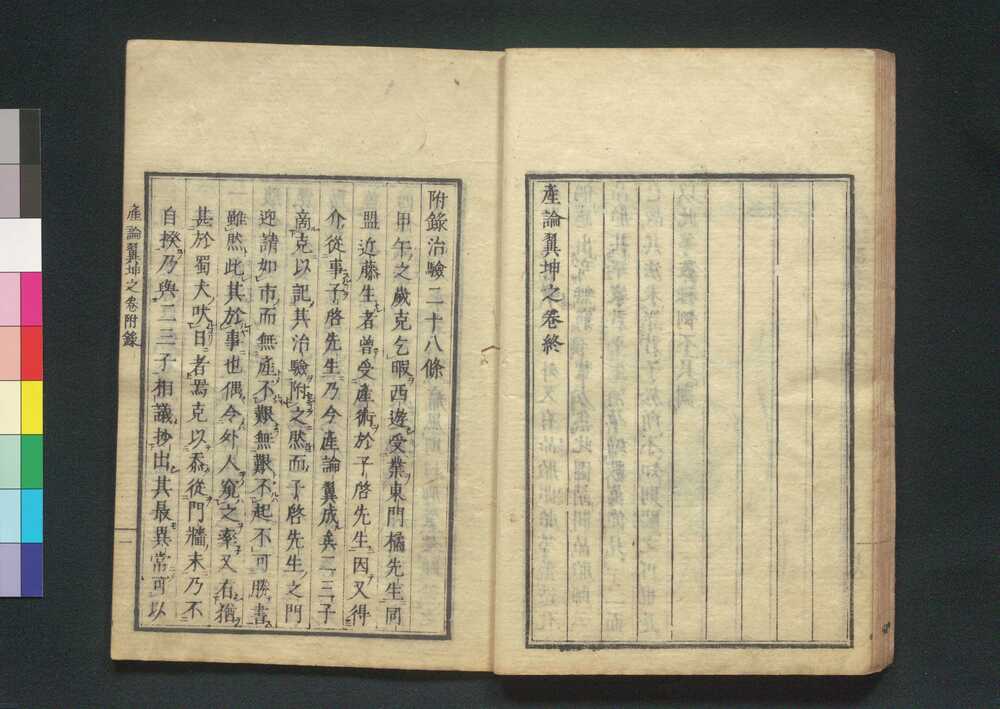 產論翼坤之卷終
附錄治驗二十八條
甲午之歲克乞暇西遊受業東門橘先生同
盟近藤生者曾受產術於子啓先生因又得
介從事子啓先生乃今產論翼成矣二三子
啇克以記其治驗附之然而子啓先生之門
迎請如市而無產不艱無艱不起不可勝書
雖然此其於事也偶令外人窺之率又有猶
甚於蜀犬吠日者焉克以忝從門牆末乃不
自揆乃與二三子相議抄出其最異常可以
產論翼坤之卷附錄
一